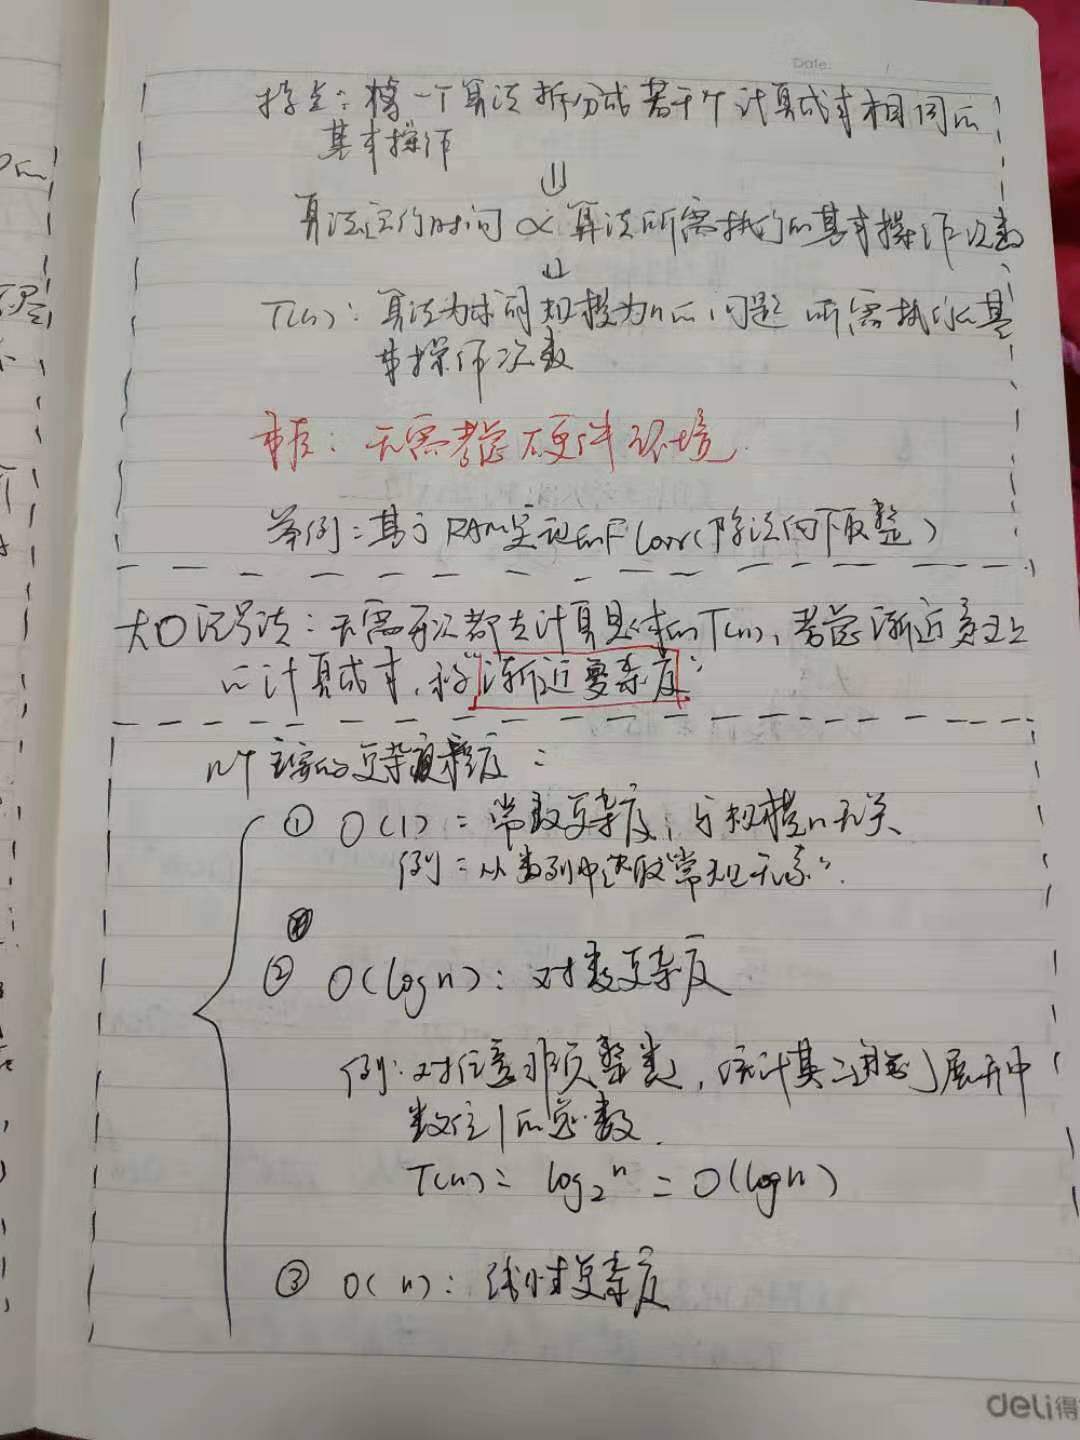 Date: /
特点：将一个算法拆分成若干个计算成本相同的
基本操作
⇓
算法运行时间 ∝ 算法所需执行的基本操作次数
⇓
T(n)：算法为求解规模为n的问题 所需执行的基
本操作次数
本质：无需考虑硬件环境.
举例：基于RAM实现的Floor(除法向下取整)
大O记号法：无需每次都去计算具体的T(n), 考虑渐近意义上
的计算成本, 称"渐近复杂度"
几个主要的复杂度：
① O(1)：常数复杂度, 与规模n无关
例：从数列中选取"常规元素".
② O(logn)：对数复杂度
例：对任意非负整数, 统计其二进制展开中
数位1的总数.
T(n) = log₂ⁿ = O(logn)
③ O(n)：线性复杂度
deli得